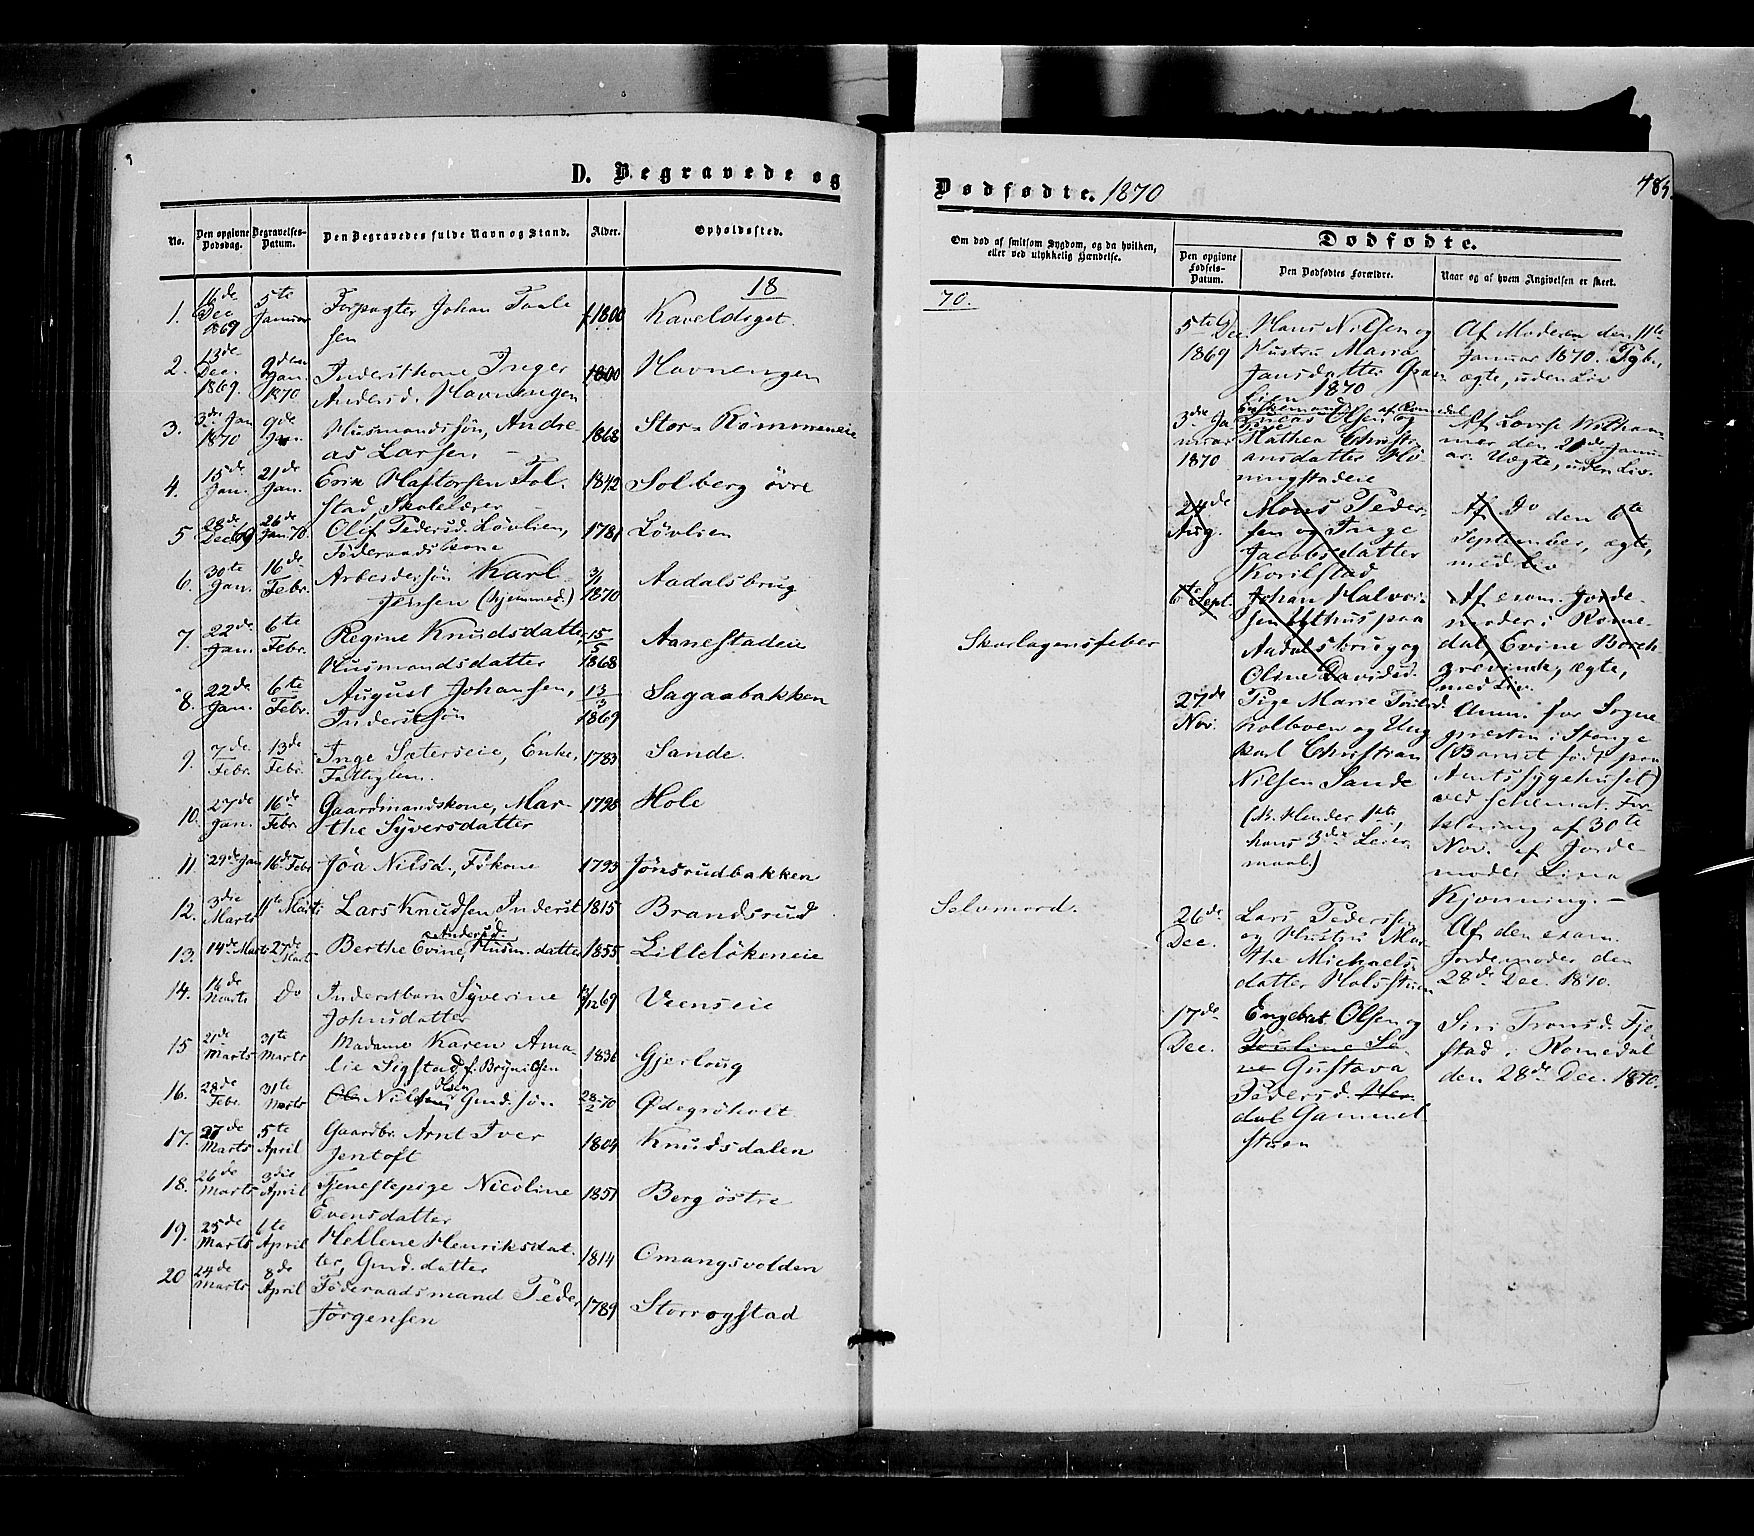 D. Begravede og
No.
Den opgivne Dødsdag.
Begravelses-Datum.
Den Begravedes fulde Navn og Stand.
Alder.
Opholdssted.
18
1. 16de Dec 1869 5te Januar Forpagter Johan Taale sen 1800 Kaveldiget.
2. 13de Dec. 1869. Jan. 1870 Inderstkone Inger Andersd. Havnengen 1800 Havnengen
3. 3die Jan 1870 9de Jan Husmandssøn, Andre as Larsen, 1868 Stor-Rømmeneie
4. 15de Jan. 21de Jan. Erik Haftorsen Tol- stad, Skolelærer 1842 Solberg øvre
5 28de Dec 69 26de Jan 70. Olif Pedersd. Løvlien, Føderaadskone 1781 Løvlien
6. 30te Jan. 16de Febr. Arbeidersøn Karl Jensen (hjemmed.) 3/1 1870 Aadalsbrug
7. 22de Jan. 6te Febr. Regine Knudsdatter, Husmandsdatter 15/5 1868 Aanestadeie
8. 22de Jan. 6te Febr. August Johansen, Inderstsøn 13/3 1869 Sagaabakken
9. 7de Febr. 13de Febr. Inge Sæterseie, Enke, Fattiglem. 1783 Sande.
10. 27de Jan. 16de Febr. Gaardmandskone, Mar- the Syversdatter 1798 Hole
11. 29de Jan 16de Febr Jøa Nilsd., Fskone 1793 Jønsrudbakken
12. 3die Marts 11te Marts Lars Knudsen Inderst 1815 Brandsrud
13. 14de Marts 27de Marts Berthe Evine Andersd. Husm. datter 1855 Lilleløkeneie
14. 16de Marts Do Inderstbarn Syverine Johnsdatter 13/12 69 Veenseie
15 21de Marts 31te Marts Madame Karen Ama- lie Sigstad f. Brynilsen 1836 Gjerloug
16. 28de Febr. 31te Marts Ole Nilsen Olsen Gmd. søn 28/2 70 Ødegröholt.
17. 27de Marts 5te April Gaardbr. Arnt Iver Jentoft 1804 Knudsdalen
18. 26de Marts 3die April Tjenestepige Nicoline Evensdatter 1851 Berg østre
19. 25de Marts 6te April Hellene Henriksdat- ter, Gmd. datter 1814 Omangsvolden
20 24de Marts 8de April Føderaadsmand Peder Jørgensen 1789 Storrogstad
Dødfødte. 1870
485.
Om død af smitsom Sygdom, og da hvilken,
eller ved ulykkelig Hændelse.
Dødfødte.
Den opgivne Fødsels-Datum.
Den Dødfødtes Forældre.
Naar og af hvem Angivelsen er skeet.
70.
Skarlagensfeber
Selvmord.
5te Dec. 1869 Hans Nilsen og Hustru Maria Jansdatter Af Moderen den 11te Januar 1870. Tgb. ægte, uden Liv
1870
3die Ja nuar 1870 Enkemand Olsen af Romedal og Pige Mathea Christi- ansdatter Hø ningstadeie Af Lovise Wilham- mer den 21de Janu ar. Uægte, uden Liv.
24de Aug. Mons Peder- sen og Inge Jacobsdatter Korilstad Af Do den 6te September, ægte, med Liv
6te Sept. Johan Halvor- sen Nythus paa Aadalsbrug og Oline Davidsd. Af exam. Jorde- moder i Rome- dal Evine Borch grevink, ægte, med Liv.
27de Nov. Pige Marie Poulsd. Kolboen og Ung karl Christian Nilsen Sande (B. Hendes 1ste, hans 3die Leier- maal.) Anm. for Sogne presten i Stange (Barnet født paa Amtssygehuset) ved schemat. For- klaring af 30te Nov. af Jorde- moder Lina Kjønning. —
26de Dec. Lars Pedersen og Hustru Mar- the Michaels- datter Holsstuen Af den exam. Jordemoder den 28de Dec. 1870.
17de Dec. Engebret Olsen og Pauline Se- ne Gustava Pedersd. He- dal Gammel stuen Siri Tronsd. Fje stad i Romedal den 28de Dec. 1870.